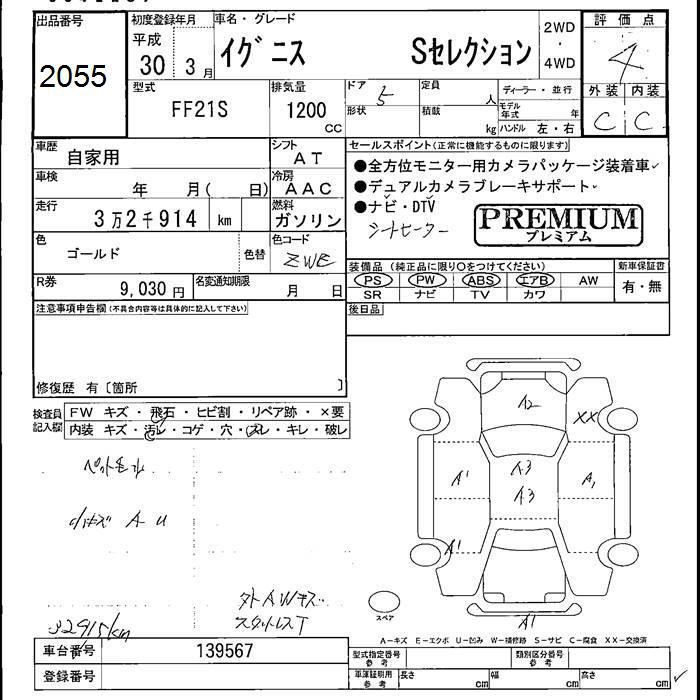 出品番号
2055
初度登録年月
平成
30 3月
車名・グレード
イグニス Sセレクション
2WD
・
4WD
評価点
4
外装 内装
C C
型式
FF21S
排気量
1200
cc
ドア 5
形状
定員 人
積載 kg
ディーラー・並行
モデル年式 年
ハンドル 左・右
車歴
自家用
シフト
AT
車検
年 月( 日)
冷房
AAC
走行
3万2千914 km
燃料
ガソリン
色
ゴールド
色替
色コード
ZWE
R券
9,030円
名変通知期限
月 日
セールスポイント(正常に機能するものに限ります)
●全方位モニター用カメラパッケージ装着車
●デュアルカメラブレーキサポート
●ナビ・DTV
シートヒーター
PREMIUM
プレミアム
装備品 (純正品に限り○をつけてください)
PS PW ABS エアB AW
SR ナビ TV カワ
新車保証書
有・無
注意事項申告欄(不具合内容等は具体的に記入して下さい)
後日品
修復歴 有〔箇所 〕
検査員記入欄
FW キズ・飛石・ヒビ割・リペア跡・×要
内装 キズ・汚レ・コゲ・穴・スレ・キレ・破レ
ペット毛
小キズ A U
外AWキズ
スタットレスT
32915km
A2
XX
A1
A3
A3
A1
A1
A1
スペア
A-キズ E-エクボ U-凹み W-補修跡 S-サビ C-腐食 XX-交換済
車台番号
139567
登録番号
型式指定番号
参考
類別区分番号
参考
車庫証明用
参考
長さ cm
幅 cm
高さ cm